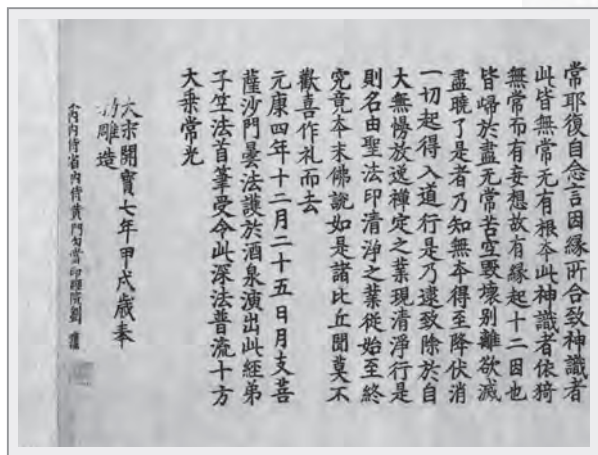 常耶復自念言因緣所合致神識者
此皆無常无有根夲此神識者依猗
無常而有妄想故有緣起十二因也
皆歸於盡无常苦空毀壞別離欲滅
盡曉了是者乃知無夲得至降伏消
一切起得入道行是乃逮致除於自
大無憍慢放逸禪定之業現清淨行是
則名由聖法印清淨之業從始至終
究竟夲末佛說如是諸比丘聞莫不
歡喜作礼而去
元康四年十二月二十五日月支菩
薩沙門曇法護於酒泉演出此經弟
子竺法首筆受令此深法普流十方
大乘常光
大宋開寶七年甲戌歲奉
雕造
内侍省内侍黄門勾當印經院劉